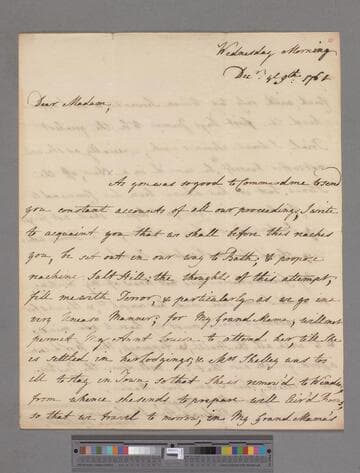 Wednesday Morning
Decr. ye 9th. 1761
Dear Madam,
As you was so good to Command me to send
you constant accounts of all our proceedings, I write
to acquaint you that we shall before this reaches
you, be set out in our way to Bath, &
Salt Hill: the thoughts of this attempt,
fill me with Terror, & particularly as we go in a
very Manner; for My Grand Mama, will not
permit My Aunt to attend her, till She
is settled in her Lodgings; & Mrs. was too
ill to stay in Town, so that She is remov'd to
from whence She sends to prepare well Air'd
so that we travel to morrow, in My Grand Mama's